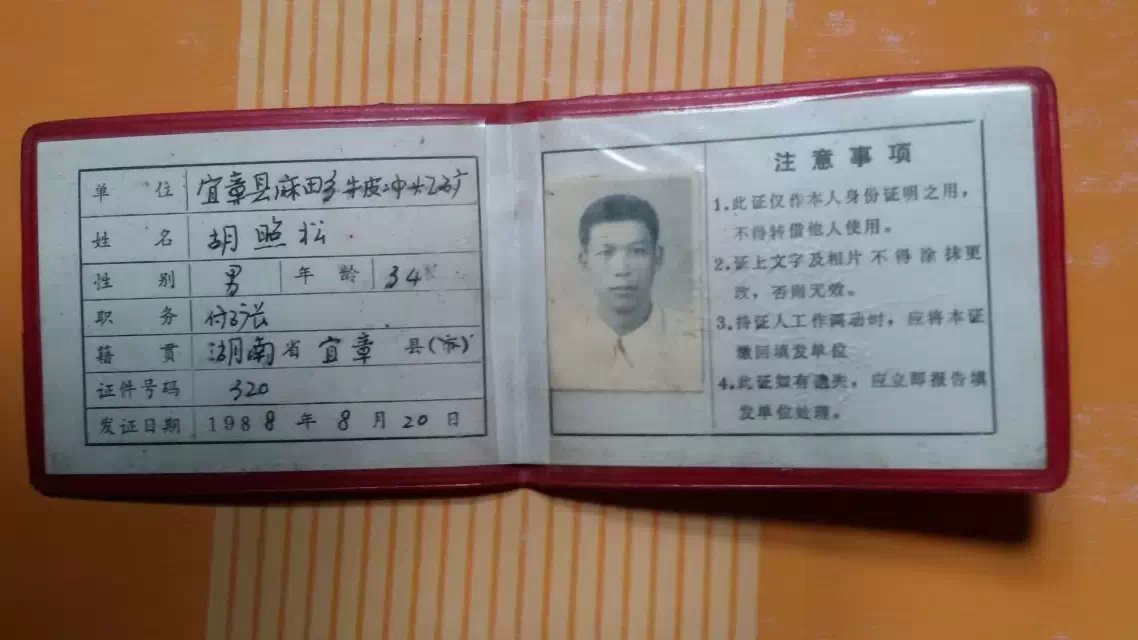 单位 宜章县麻田乡牛皮冲
姓名 胡照松
性别 男 年龄 34
职务 付矿长
籍贯 湖南省宜章县(市)
证件号码 320
发证日期 1988年8月20日
注意事项
1.此证仅作本人身份证明之用，
不得转借他人使用。
2.证上文字及相片不得涂抹更
改，否则无效。
3.持证人工作调动时，应将本证
缴回填发单位
4.此证如有遗失，应立即报告填
发单位处理。